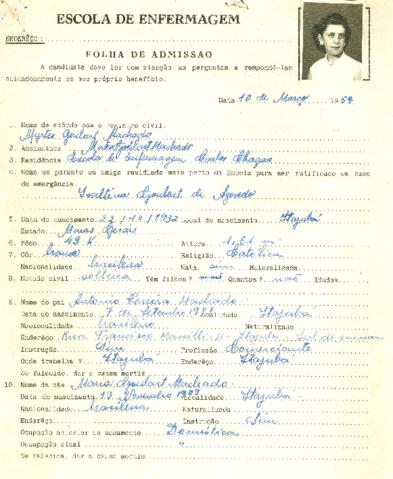 ESCOLA DE ENFERMAGEM
ENDERÊÇO:
FOLHA DE ADMISSÃO
A candidata deve ler com atenção as perguntas e respondê-las
cuidadosamente em seu próprio benefício.
Data 10 de Março 1954
1. Nome de acôrdo com o registro civil.
Myrtes Goulart Machado
2. Assinatura Goulart Machado
3. Residência Escola de Enfermagem Carlos Chagas
4. Nome de parente ou amigo residade mais perto da Escola para ser notificado em caso
de emergência
Goulart de Azevedo
5. Data do nascimento 22 / 1932 Local de nascimento Itajubá
Estado Minas Gerais
6. Pêso 49 K. Altura 1,61 m
7. Côr branca Religião Católica
Nacionalidade brasileira Nata sim Naturalizada
8. Estado civil solteira Tem filhos? não Quantos? não Idades
9. Nome do pai Antonio Pereira Machado
Data do nascimento 7 de Setembro Localidade Itajubá
Nacionalidade brasileiro Naturalizado
Enderêço Rua Francisco Itajubá Sul de minas
Instrução Sim Profissão Comerciante
Onde trabalha? Itajubá Enderêço Itajubá
Se falecido, dar a causa mortis
10. Nome da mãe Maria Goulart Machado
Data do nascimento 13 Localidade Itajubá
Nacionalidade brasileira Naturalizada
Enderêço Instrução Sim
Ocupação anterior ao casamento Doméstica
Ocupação atual "
Se falecida, dar a causa mortis